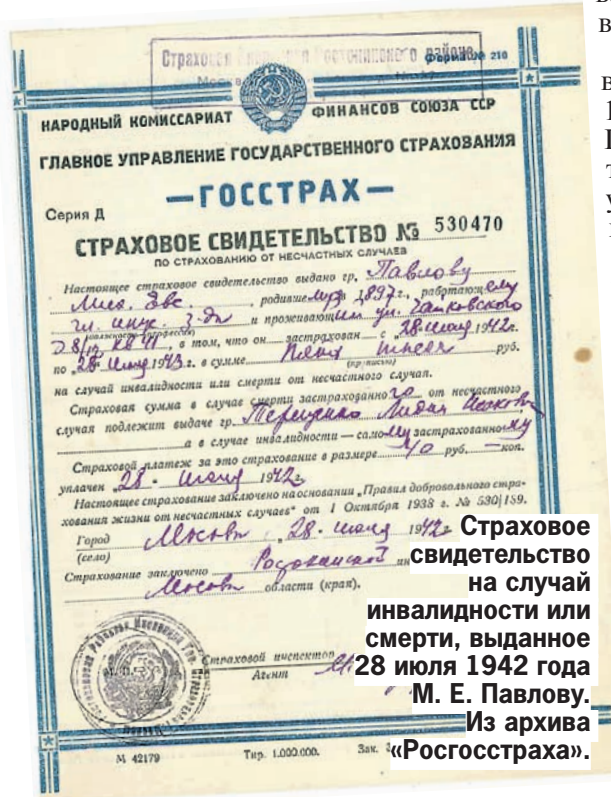 Страховая Ростокинского района
Форма № 210
НАРОДНЫЙ КОМИССАРИАТ ФИНАНСОВ СОЮЗА ССР
ГЛАВНОЕ УПРАВЛЕНИЕ ГОСУДАРСТВЕННОГО СТРАХОВАНИЯ
—ГОССТРАХ—
Серия Д
СТРАХОВОЕ СВИДЕТЕЛЬСТВО № 530470
ПО СТРАХОВАНИЮ ОТ НЕСЧАСТНЫХ СЛУЧАЕВ
Настоящее страховое свидетельство выдано гр. Павлову
Мих. Евс. родивше муся в 1897 г., работающ ему
гл. инж. и проживающ им ул. Чайковского
в том, что он застрахован с „28" июля 1942 г.
по „28" июля 1943 г. в сумме Пять тысяч руб.
(прописью)
на случай инвалидности или смерти от несчастного случая.
Страховая сумма в случае смерти застрахованно го от несчастного
случая подлежит выдаче гр. Терещенко Лидия
а в случае инвалидности — само му застрахованно му
Страховой платеж за это страхование в размере 40 руб. — коп.
уплачен 28 - июля 1942 г.
Настоящее страхование заключено на основании „Правил добровольного стра-
хования жизни от несчастных случаев" от 1 Октября 1938 г. № 530/159.
Город Москва „28" июля 1942 г.
(село)
Страхование заключено Ростокинской
Москов области (края).
Страховой инспектор
Агент
М 42179 Тир. 1.000.000. Зак.
Страховое
свидетельство
на случай
инвалидности или
смерти, выданное
28 июля 1942 года
М. Е. Павлову.
Из архива
«Росгосстраха».